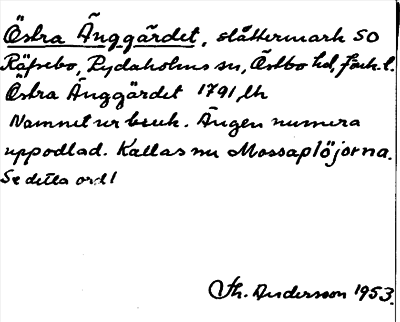 Östra Änggärdet, slåttermark SO
Räfsebo, Rydaholms sn, Östbo hd, Jönk. l.
Östra Änggärdet 1791, lh
Namnet ur bruk. Ängen numera
uppodlad. Kallas nu Mossaplöjorna.
Se detta ord!
Th. Andersson 1953.